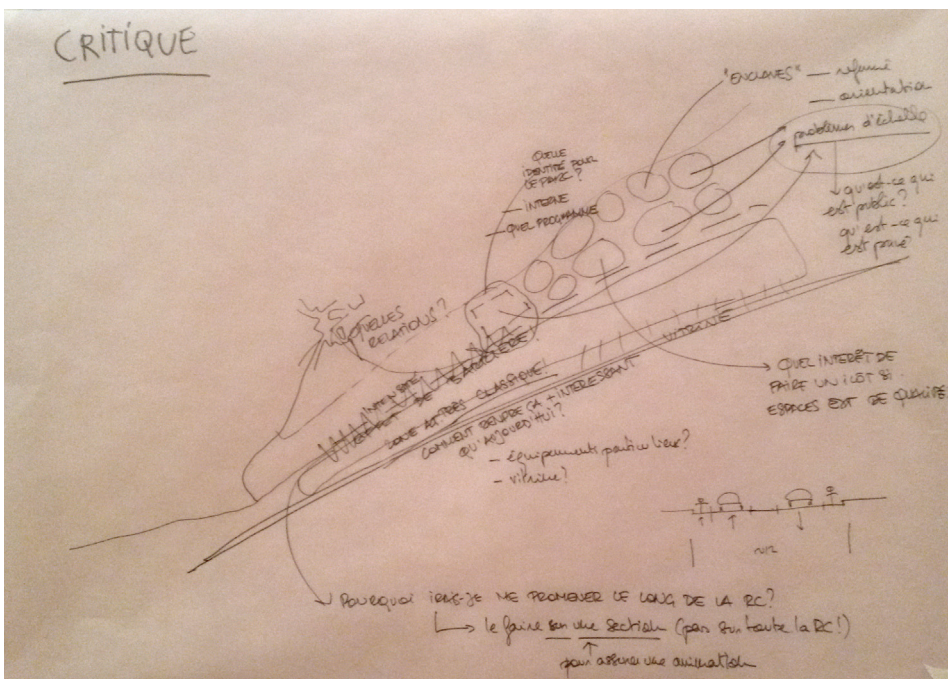 CRITIQUE
"ENCLAVES" — refermé
— orientation
problèmes d'échelle
qu'est-ce qui
est public?
qu'est-ce qui
est privé?
QUELLE
IDENTITÉ POUR
LE PARC?
— INTERNE
— QUEL PROGRAMME
QUELLES
RELATIONS?
INTENSITÉ
EFFET DE BARRIÈRE!
ZONE AU TRÈS CLASSIQUE!
COMMENT RENDRE ÇA + INTERESSANT
QU'AUJOURD'HUI?
— équipements particuliers?
— vitrine?
VITRINE
QUEL INTERÊT DE
FAIRE UN ILÔT SI
ESPACES EXT DE QUALITÉ
POURQUOI IRAIS-JE ME PROMENER LE LONG DE LA RC?
le faire sur une section (pas sur toute la RC!)
pour assurer une animation